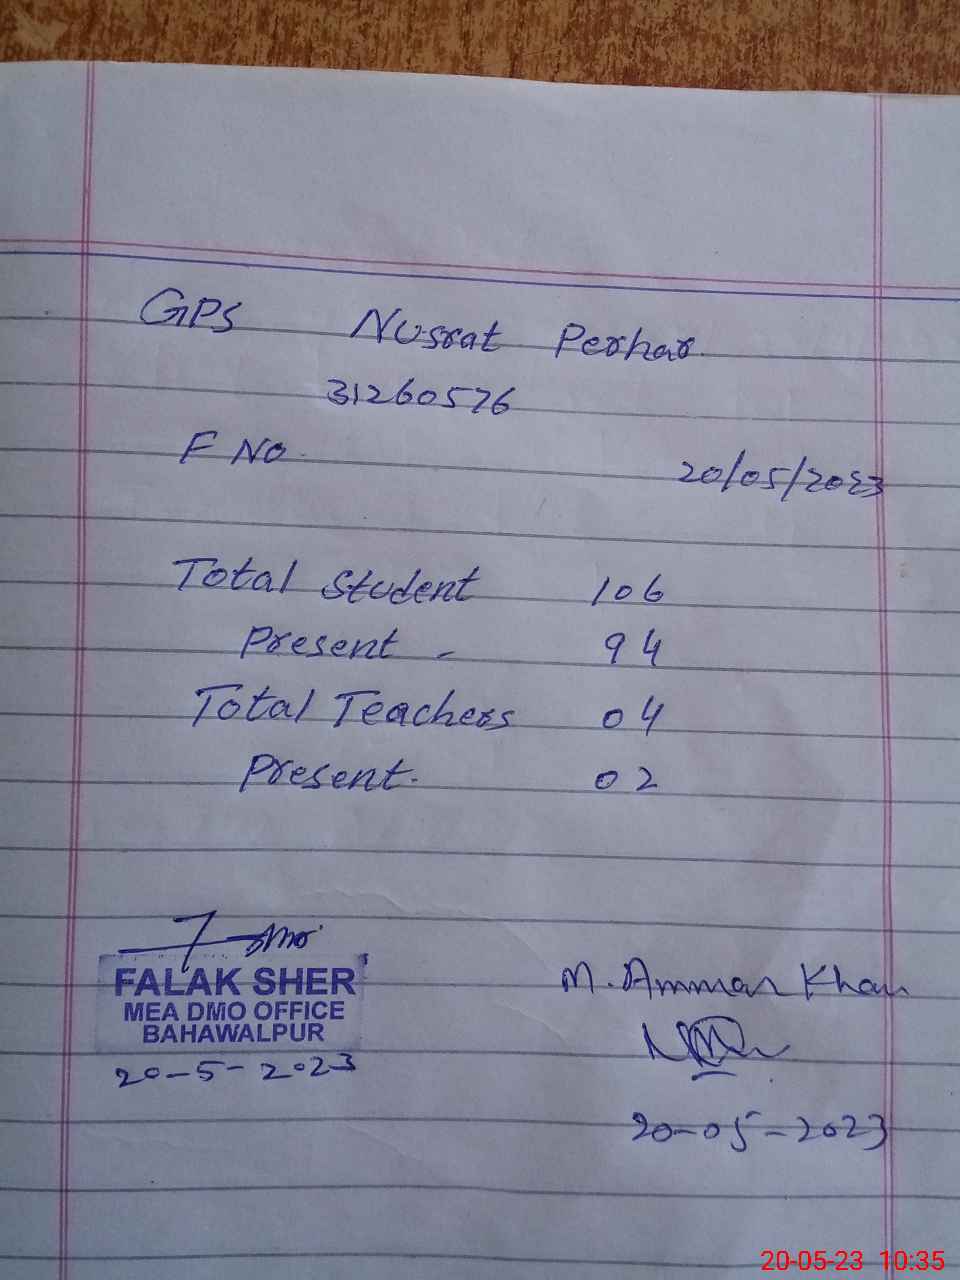 GPS Nusrat Perhar
31260576
F No
20/05/2023
Total Student 106
Present - 94
Total Teachers 04
Present. 02
FALAK SHER
MEA DMO OFFICE
BAHAWALPUR
20-5-2023
M. Ammar Khan
20-05-2023
20-05-23 10:35